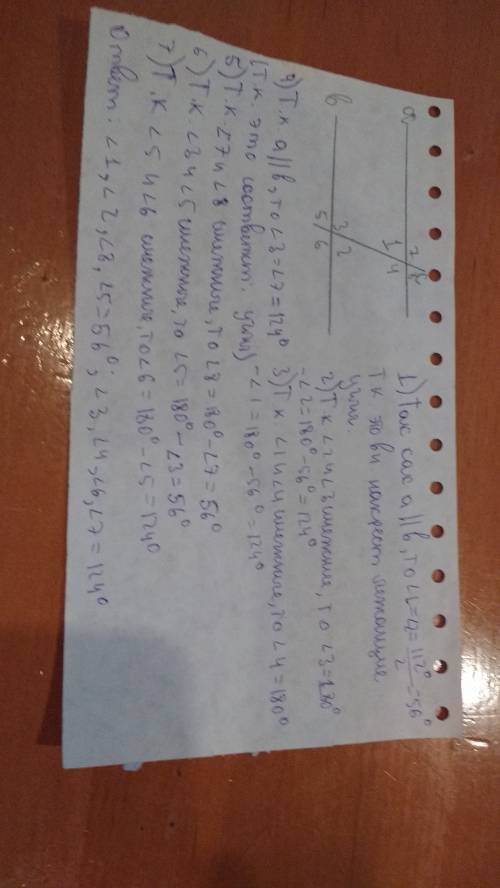 a
7 8
1 4
b
3 2
5 6
1) Так как a || b, то <1=<2= 112°/2 =56°
т.к это вн накрест лежащие
углы
2) Т.к <2 и <3 смежные, то <3=180°
-<2=180°-56°=124°
3) Т.к. <1 и <4 смежные, то <4=180°
-<1=180°-56°=124°
4) Т.к a || b, то <3=<7=124°
(т.к. это соответст. углы)
5) Т.к. <7 и <8 смежные, то <8=180°-<7=56°
6) Т.к. <3 и <5 смежные, то <5=180°-<3=56°
7) Т.к <5 и <6 смежные, то <6=180°-<5=124°
Ответ: <1, <2, <8, <5=56°; <3, <4, <6, <7=124°